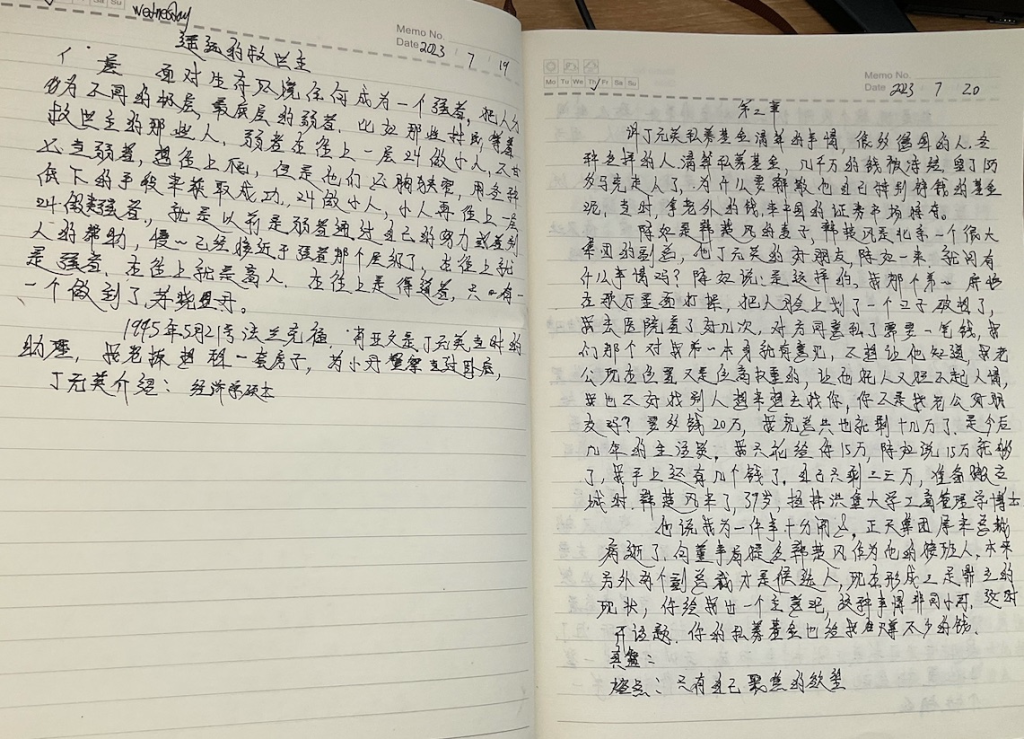 Sa Su
Wednesday
Memo No.
Date 2023 7 19
遥远的救世主
面对生存环境任何成为一个强者,把人分
为不同的极层,最底层的弱者,比如那些排队等着
救世主的那些人,弱者在往上一层叫做小人,不甘
心当弱者,想往上爬,但是他们心胸狭窄,用各种
低下的手段来获取成功,叫做小人,小人再往上一层
叫做强者,就是以前是弱者通过自己的努力或者别
人的帮助,慢一已经接近于强者那个层级了,在往上就
是强者,在往上就是高人,在往上是得道者,只有一
一个做到了,芮晓丹。
1995年5月21号法兰克福 肖亚文是丁元英当时的
助理,我老板想租一套房子,为小丹警察支付
丁元英介绍:经济学硕士
Mo Tu We Th Fr Sa Su
Memo No.
Date 2023 7 20
第二章
讲丁元英私募基金清算的事情,很多德国的人,各
种各样的人清算私募基金,几千万的钱被冻结,
马克走人了,为什么要解散他自己特别的基金
呢,当时,拿老外的钱,来中国的证券市场
陈茹是韩楚风的妻子,韩楚风是北京一个很大
集团的副总,他丁元英的好朋友,陈茹一来就问有
什么事情吗?陈茹说:是这样的,我那个弟一
在歌厅里面打操,把人脸上划了一个口子破相了,
我去医院看了好几次,对方同意私了要一笔钱,我
们那个对我弟一本身就有意见,不想让他知道,我老
公现在位置又是位高权重的,让面犯人又担不起人情,
我也不好找别人想来想去找你,你不是我老公好朋
友吗?要多钱20万,我现总共也就剩十几万了,是今后
几年的生活费,我只能给你15万,陈茹说15万就够
了,我手上还有几个钱了,自己只剩二三万,准备
城时,韩楚风来了,37岁,柏林洪堡大学工商管理学博士
他说我为一件事十分闹心,正天集团原来总裁
病逝了,向董事局提名韩楚风作为他的接班人,本来
另外两个副总裁才是候选人,现在形成三足鼎立的
现状,你给我出一个主意吧,这种事情非同小可,这时
开话题,你的私募基金也给我在赚不少的钱。
其盘:
熔点:只有自己聚焦的欲望